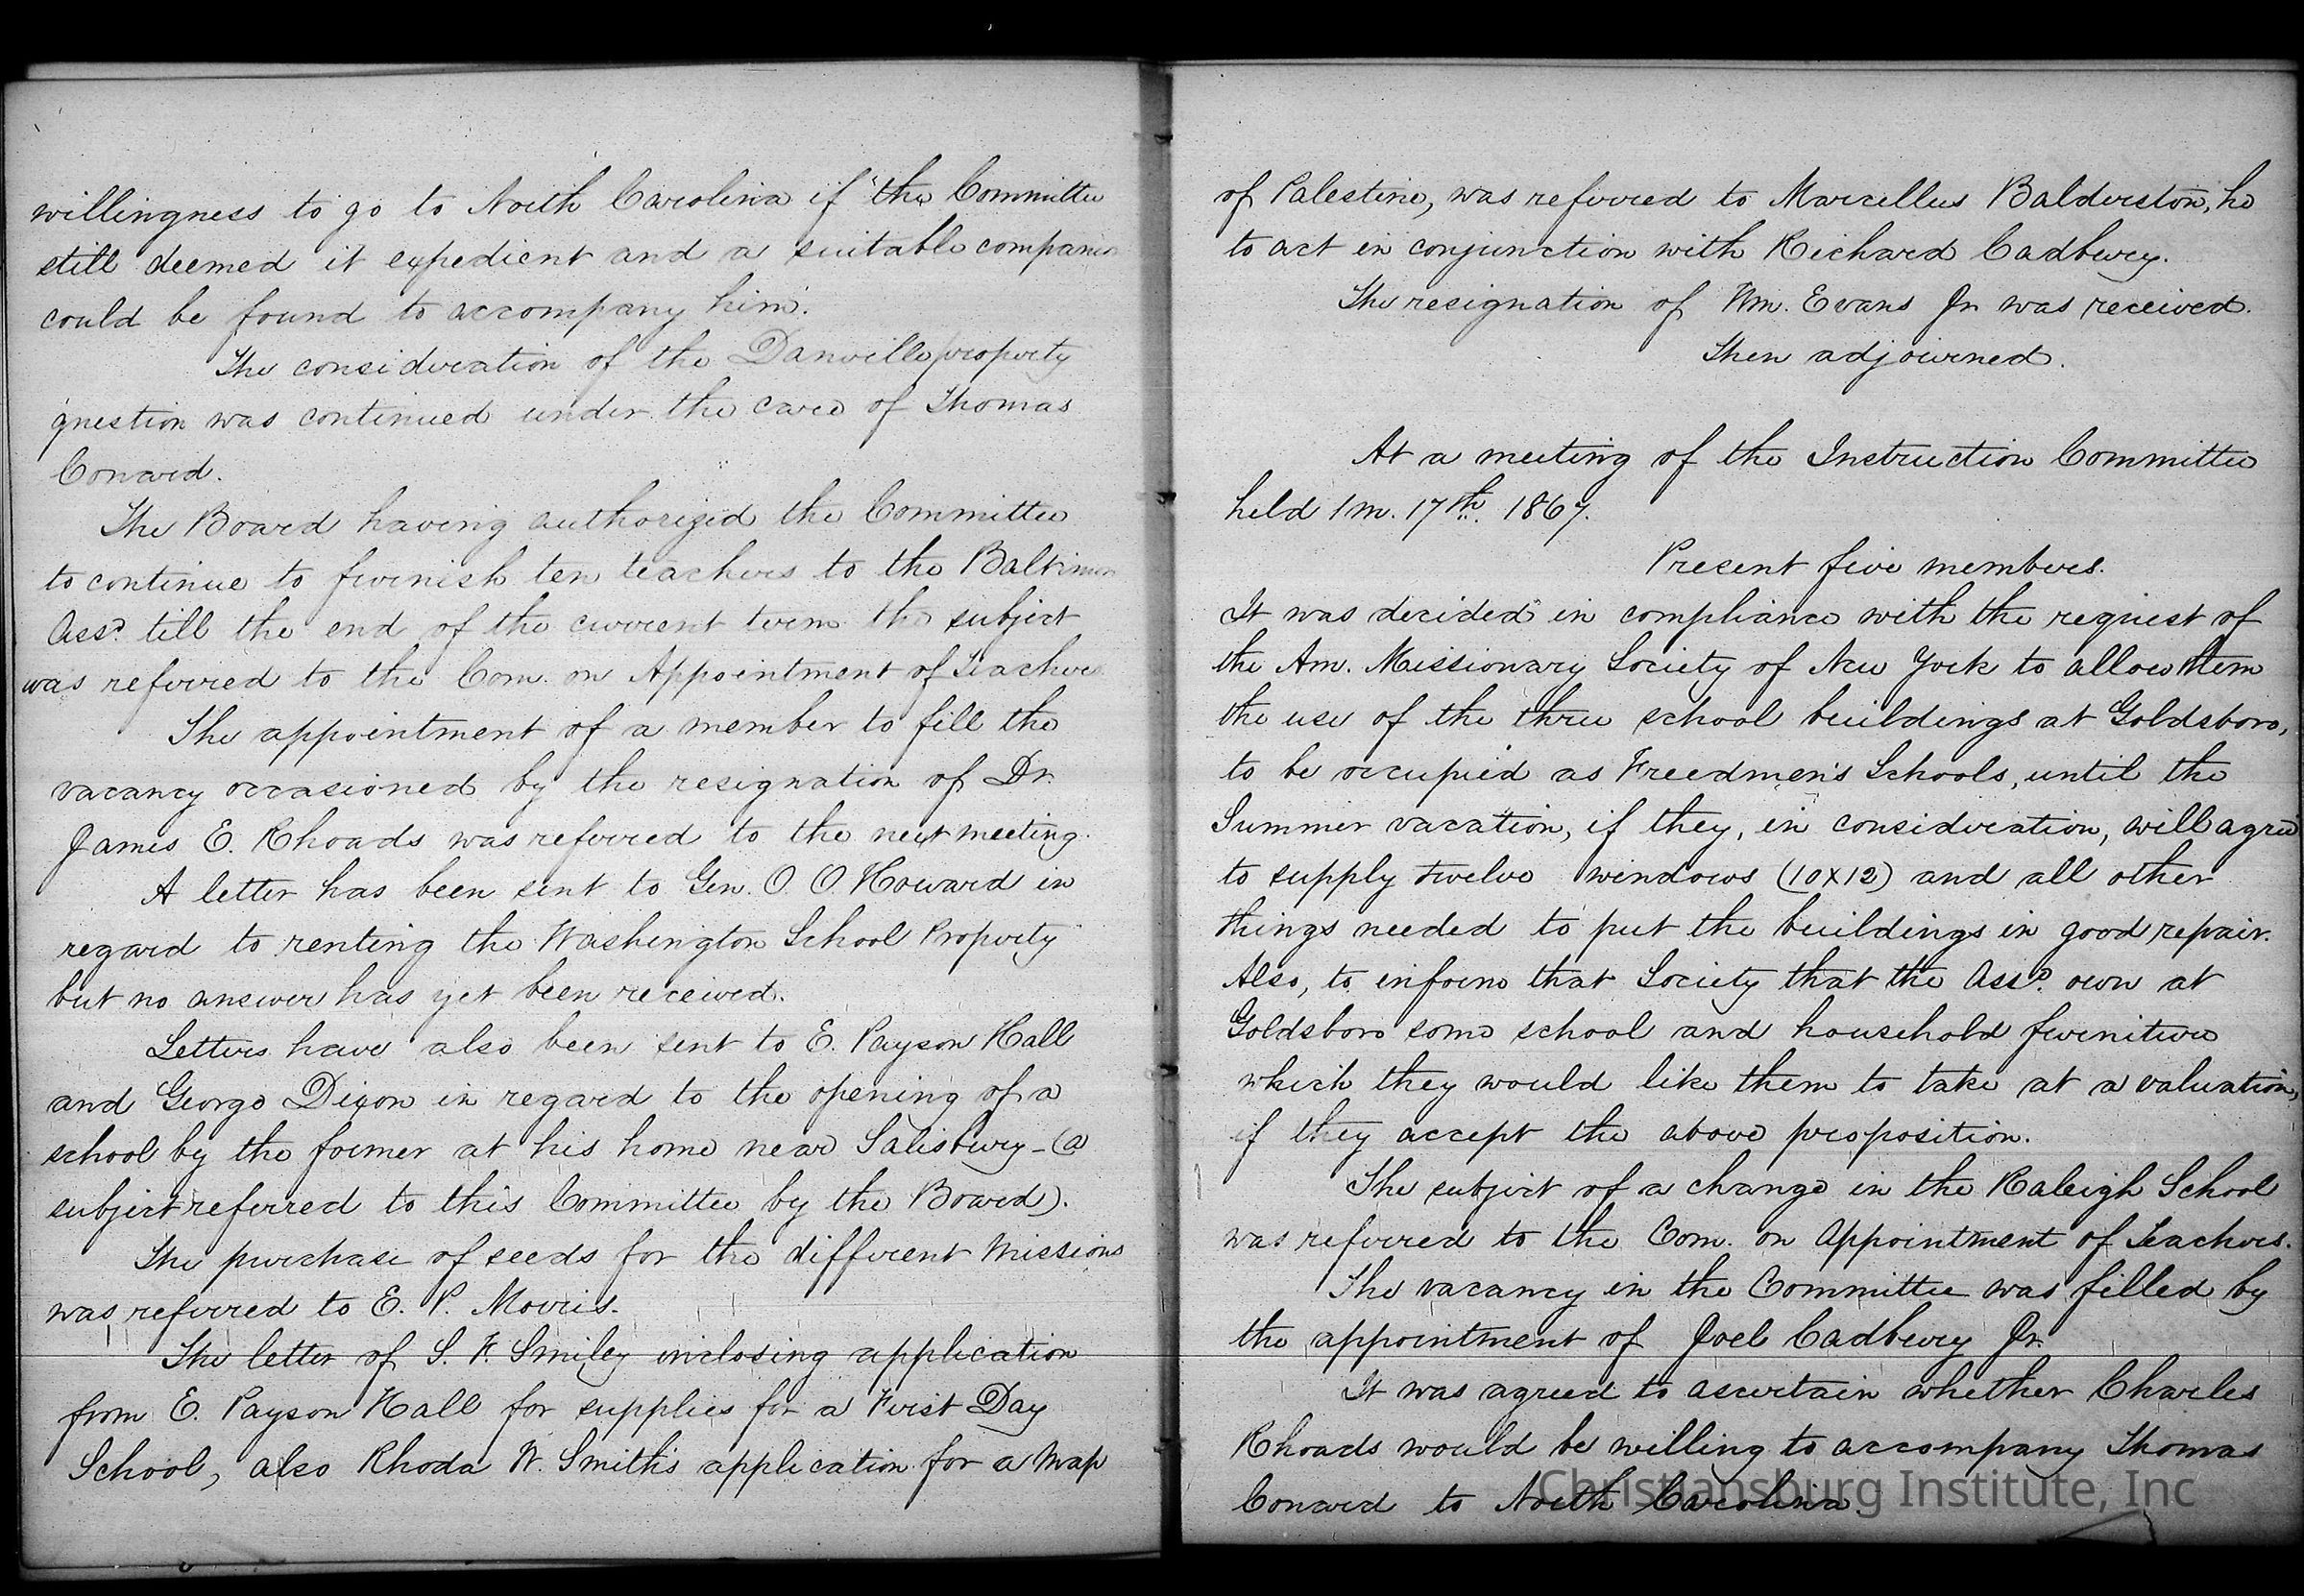 willingness to go to North Carolina if the Committee
still deemed it expedient and a suitable companion
could be found to accompany him.
The consideration of the Danville property
question was continued under the care of Thomas
Conard.
The Board having authorized the Committee
to continue to furnish ten teachers to the Baltimore
Assn. till the end of the current term the subject
was referred to the Com. on Appointment of Teachers
The appointment of a member to fill the
vacancy occasioned by the resignation of Dr.
James E. Rhoads was referred to the next meeting.
A letter has been sent to Gen. O. O. Howard in
regard to renting the Washington School Property
but no answer has yet been received.
Letters have also been sent to E. Payson Hall
and George Dixon in regard to the opening of a
school by the former at his home near Salisbury - (a
subject referred to this Committee by the Board).
The purchase of seeds for the different Missions
was referred to E. P. Morris.
The letter of S. F. Smiley inclosing application
from E. Payson Hall for supplies for a First Day
School, also Rhoda W. Smith's application for a Map
of Palestine, was referred to Marcellus Balderston, he
to act in conjunction with Richard Cadbury.
The resignation of Wm. Evans Jr. was received.
Then adjourned.
At a meeting of the Instruction Committee
held 1 m. 17th. 1867.
Present five members.
It was decided in compliance with the request of
the Am. Missionary Society of New York to allow them
the use of the three school buildings at Goldsboro,
to be occupied as Freedmen's Schools, until the
Summer vacation, if they, in consideration, will agree
to supply twelve windows (10x12) and all other
things needed to put the buildings in good repair.
Also, to inform that Society that the Assn. own at
Goldsboro some school and household furniture
which they would like them to take at a valuation,
if they accept the above proposition.
The subject of a change in the Raleigh School
was referred to the Com. on Appointment of Teachers.
The vacancy in the Committee was filled by
the appointment of Joel Cadbury Jr.
It was agreed to ascertain whether Charles
Rhoads would be willing to accompany Thomas
Conard to North Carolina.
Christiansburg Institute, Inc